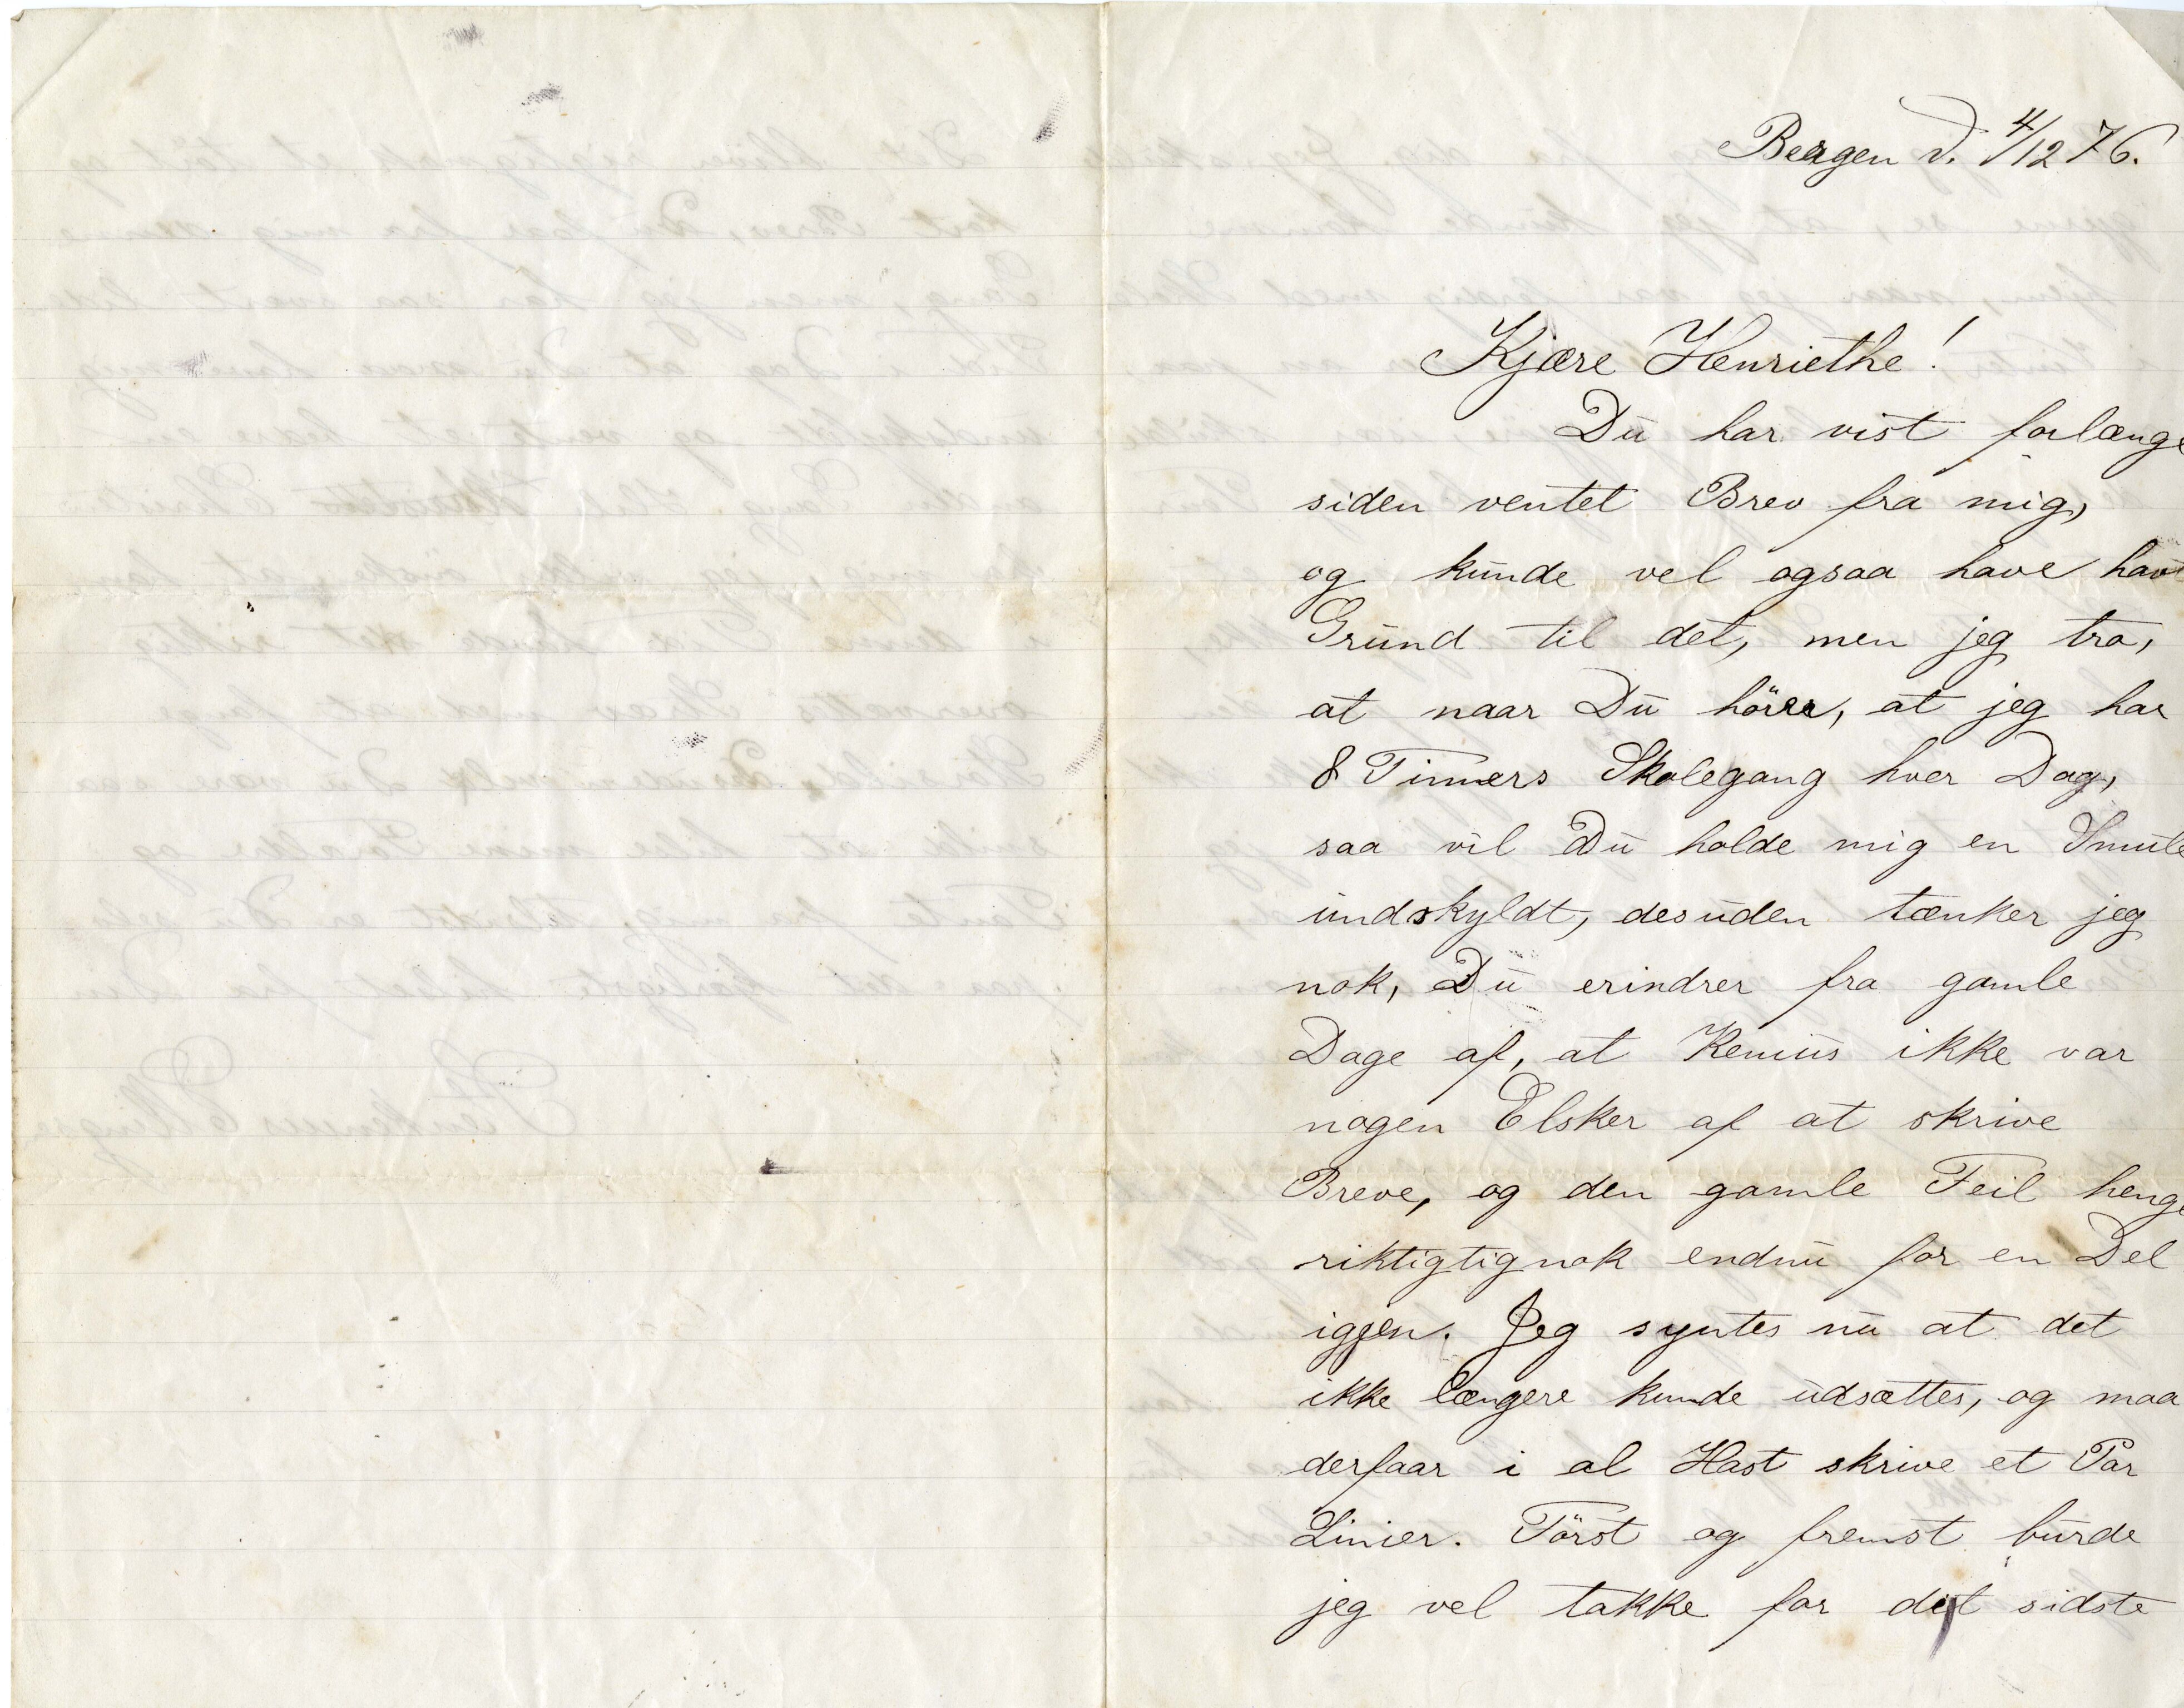 Bergen d. 4/12 76.
Kjære Henriethe!
Du har vist forlænge
siden ventet Brev fra mig,
og kunde vel ogsaa have havt
Grund til det, men jeg tro,
at naar Du hörer, at jeg har
8 Timers Skolegang hver Dag,
saa vil Du holde mig en Smule
undskyldt, desuden tænker jeg
nok, Du erindrer fra gamle
Dage af, at Kenius ikke var
nogen Elsker af at skrive
Breve, og den gamle Feil henge
riktigtignok endnu for en Del
iggjen. Jeg syntes nu at det
ikke længere kunde udsættes, og maa
derfaar i al Hast skrive et Par
Linier. Först og fremst burde
jeg vel takke for dit sidste